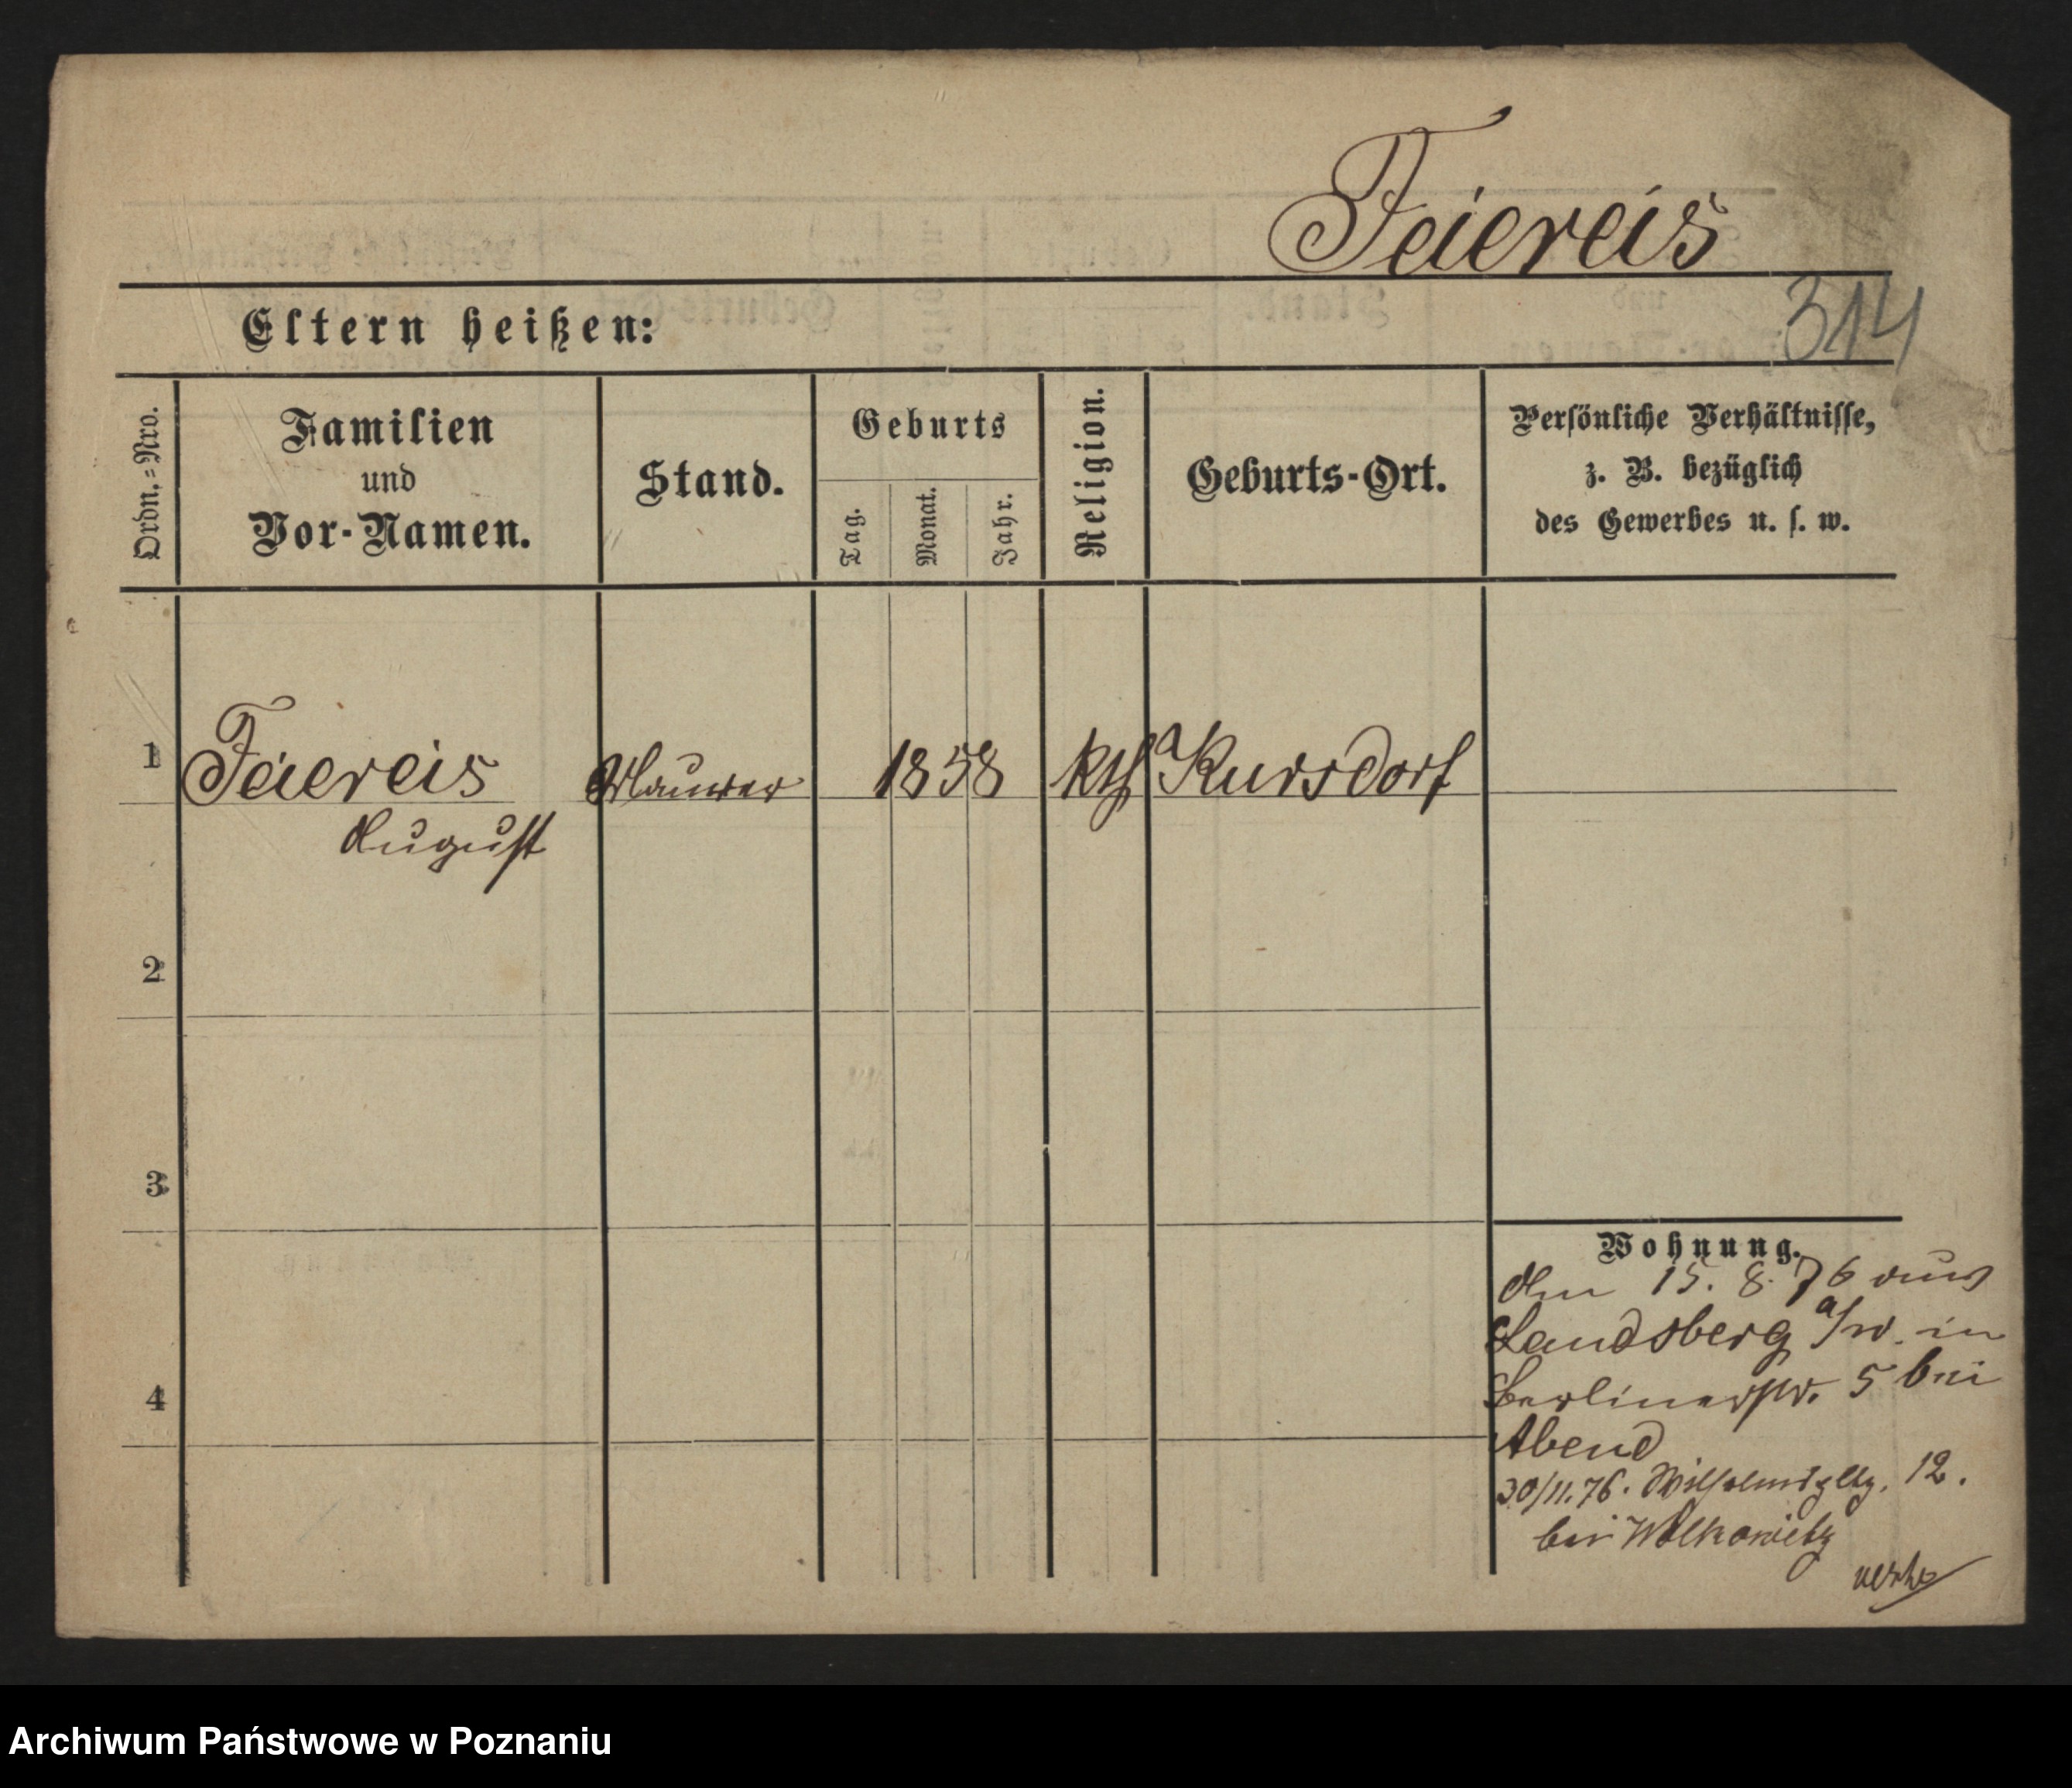 Feiereis
314
Eltern heißen:
Ordn.=Nro.
Familien
und
Vor-Namen.
Stand.
Geburts
Tag.
Monat.
Jahr.
Religion.
Geburts-Ort.
Persönliche Verhältnisse,
z. B. bezüglich
des Gewerbes u. s. w.
1 Feiereis Maurer 1858 kth Kursdorf
August
2
3
4
Wohnung.
Am 15. 8. 76 aus
Landsberg a/W. in
Berlinerstr. 5 bei
Abend
30/11.76. Wilhelmspltz. 12.
bei Wolkowitz
Archiwum Państwowe w Poznaniu